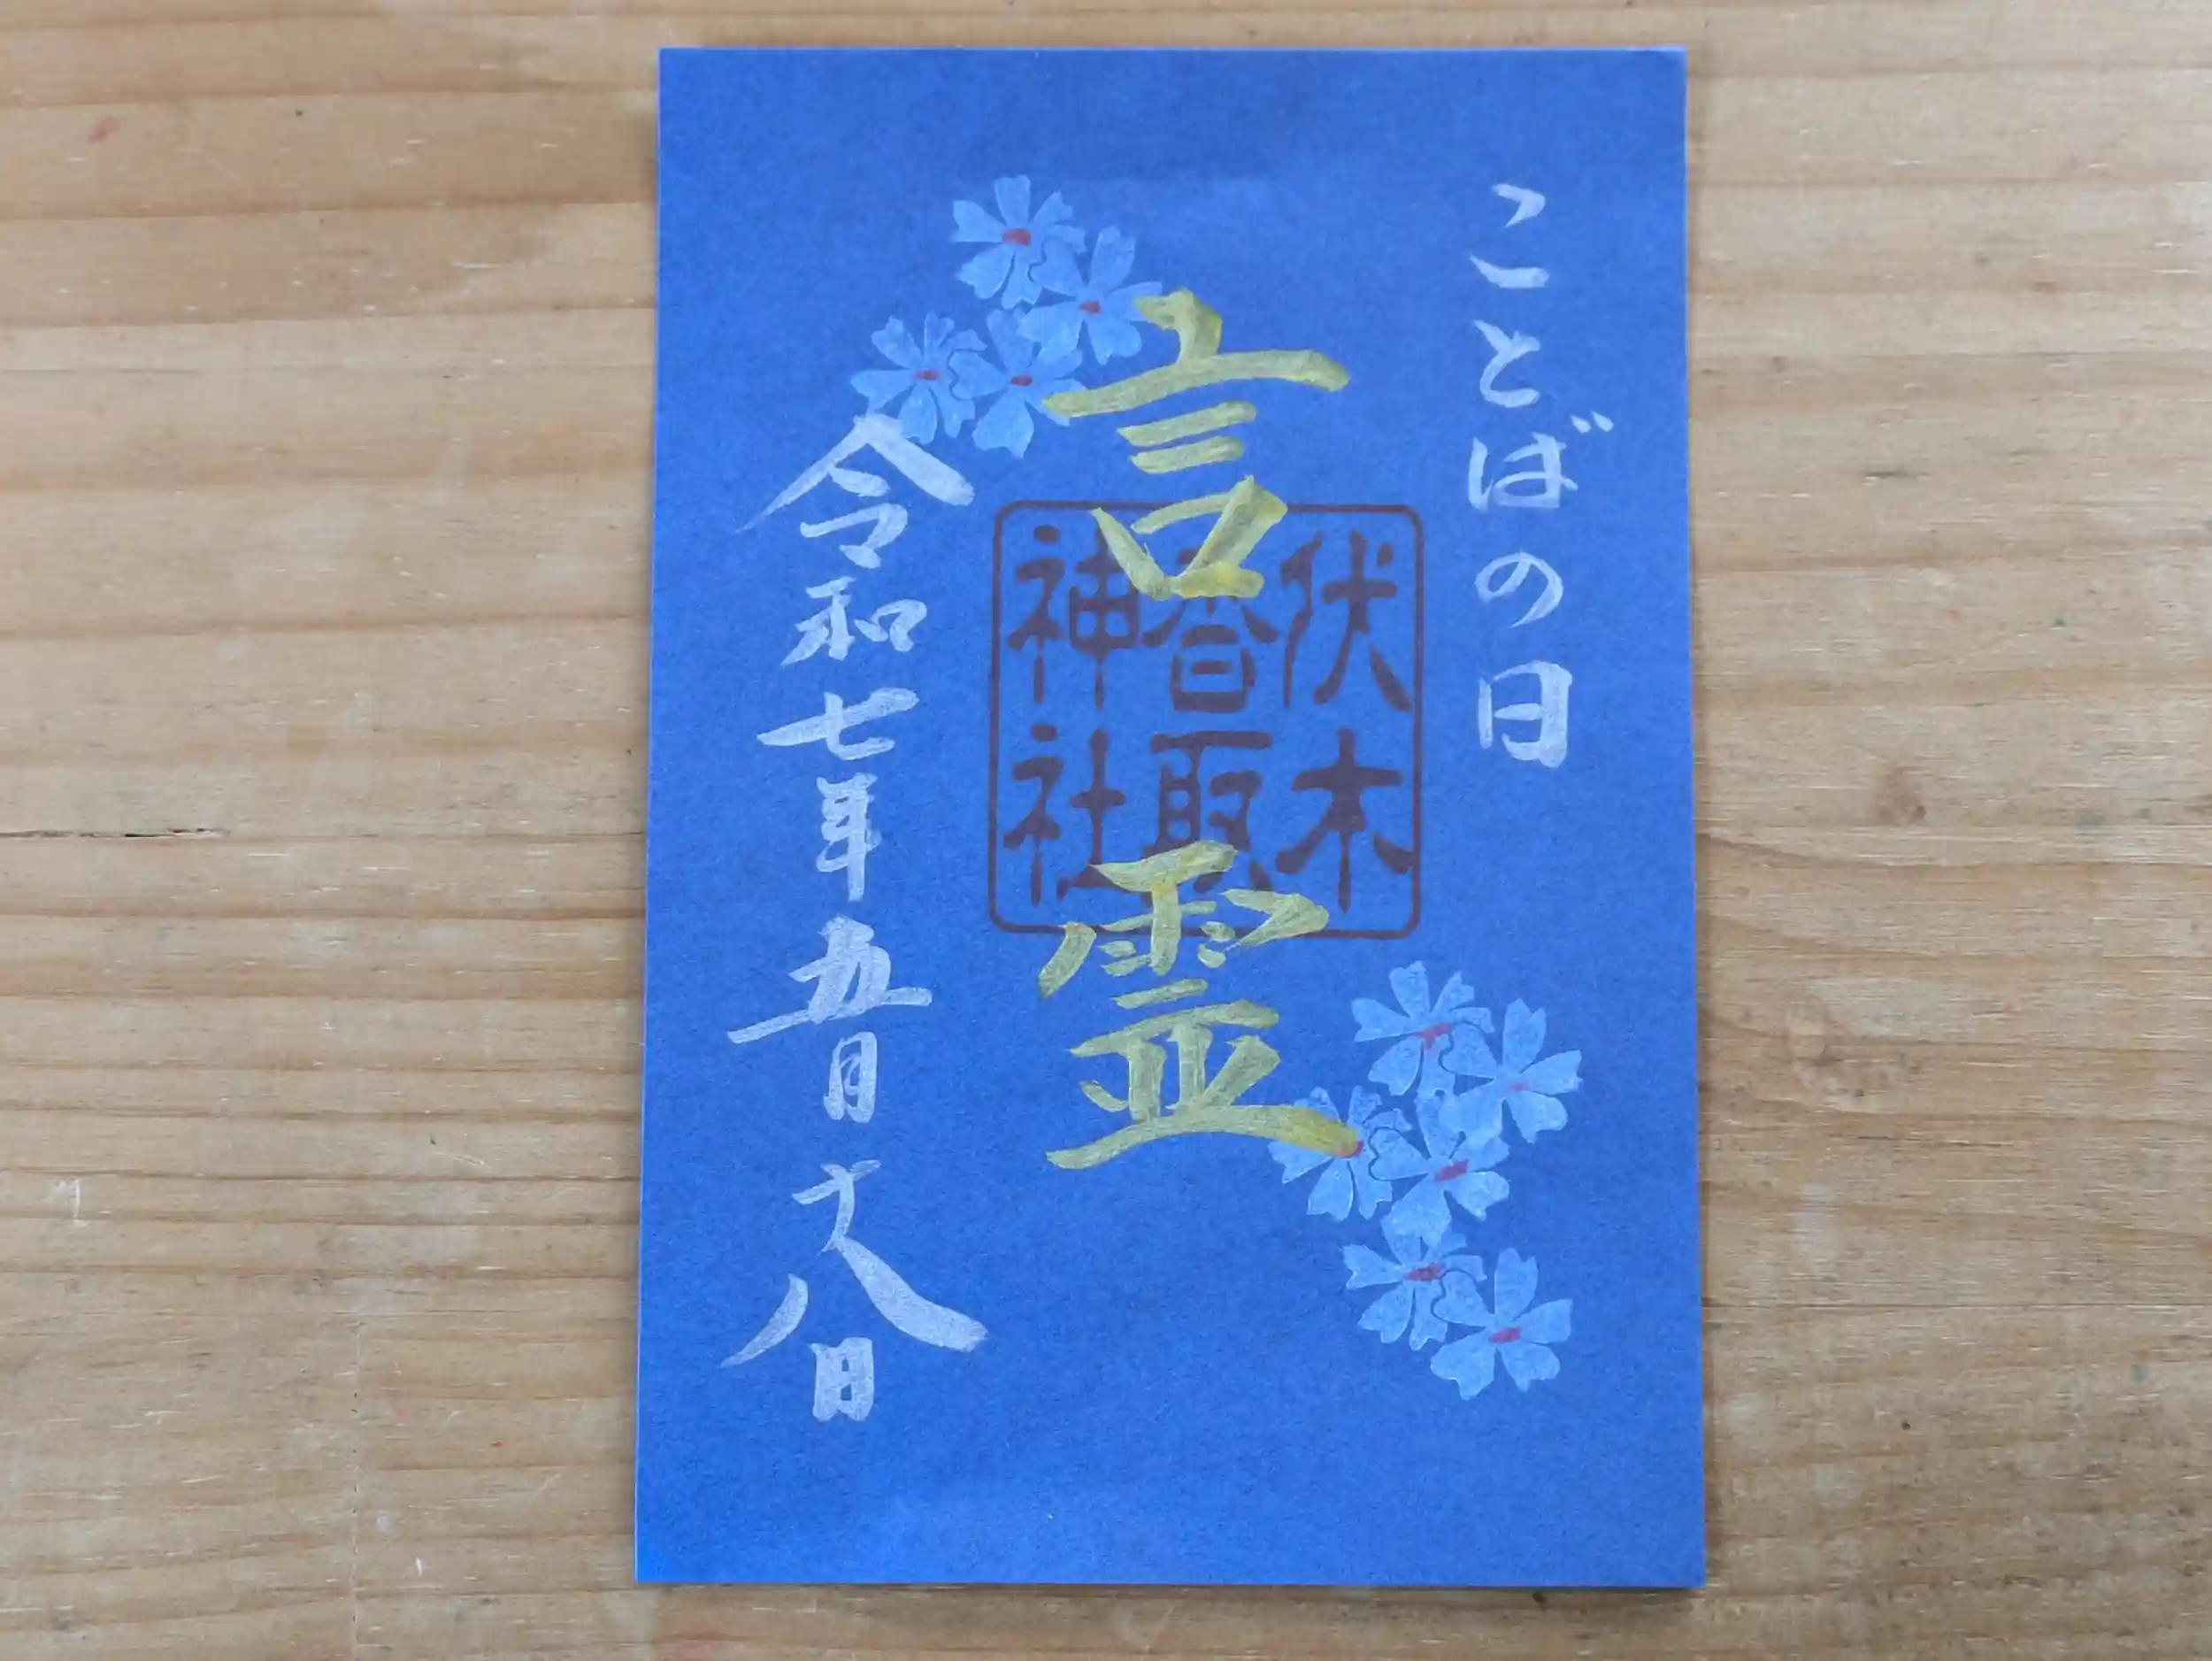 ことばの日
言霊
伏木
香取
神社
令和七年五月十八日